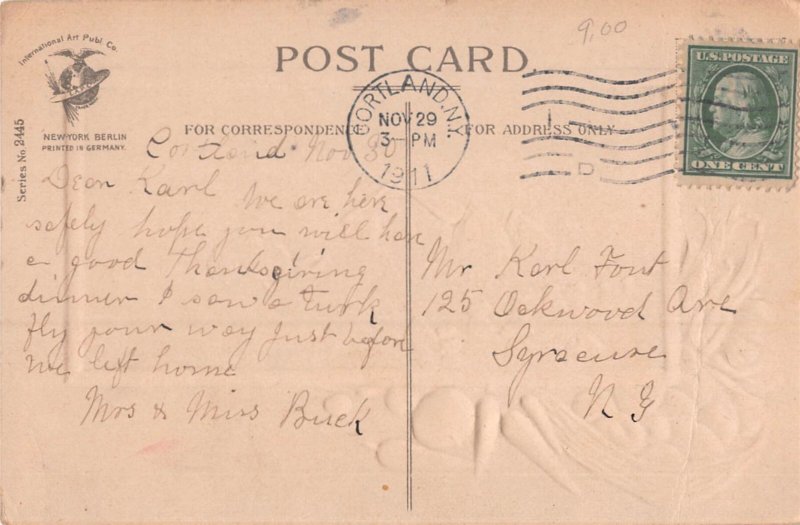 9.00
International Art Publ. Co.
POST CARD.
U.S. POSTAGE
ONE CENT
CORTLAND, N.Y.
NOV 29
3 - PM
1911
D
NEW YORK BERLIN
PRINTED IN GERMANY.
Series No. 2445
FOR CORRESPONDENCE
FOR ADDRESS ONLY
Cortland Nov 30
Dear Karl We are here
safely hope you will have
a good Thanksgiving
dinner I saw a turk
fly your way just before
we left home
Mrs & Miss Buck
Mr Karl Fout
125 Oakwood Ave
Syracuse
N Y